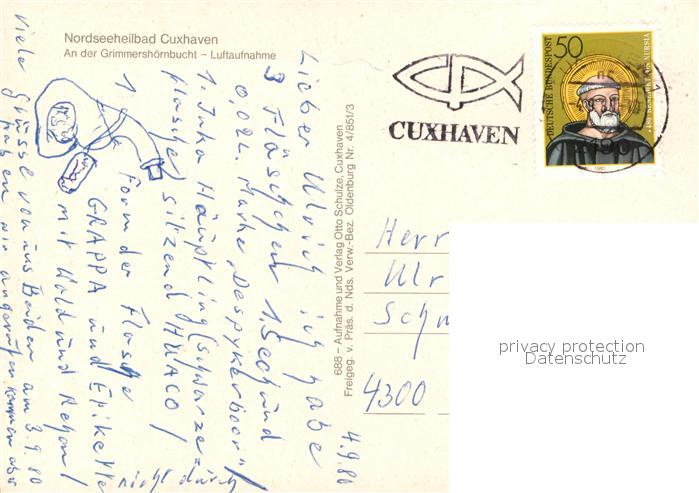 Nordseeheilbad Cuxhaven
An der Grimmershörnbucht – Luftaufnahme
CUXHAVEN
DEUTSCHE BUNDESPOST
50
2190
688 – Aufnahme und Verlag Otto Schulze, Cuxhaven
Freigeg. v. Präs. d. Nds. Verw.-Bez. Oldenburg Nr. 4/851/3
4.9.80
Lieber Ulrich ich habe
3 Fläschchen 1,5cc und
0,02 L. Marke „Despykerboor"/
1. Inka Häuptling (schwarze=
flasche) sitzend HUACO/
1 Form der Flasche
GRAPPA und Etikette
mit Wald und Reben/
Viele Grüsse von uns Beiden am 3.9.80
haben wir angerufen kommen aber
nicht durch
Herr
Ulr
Schm
4300
privacy protection
Datenschutz